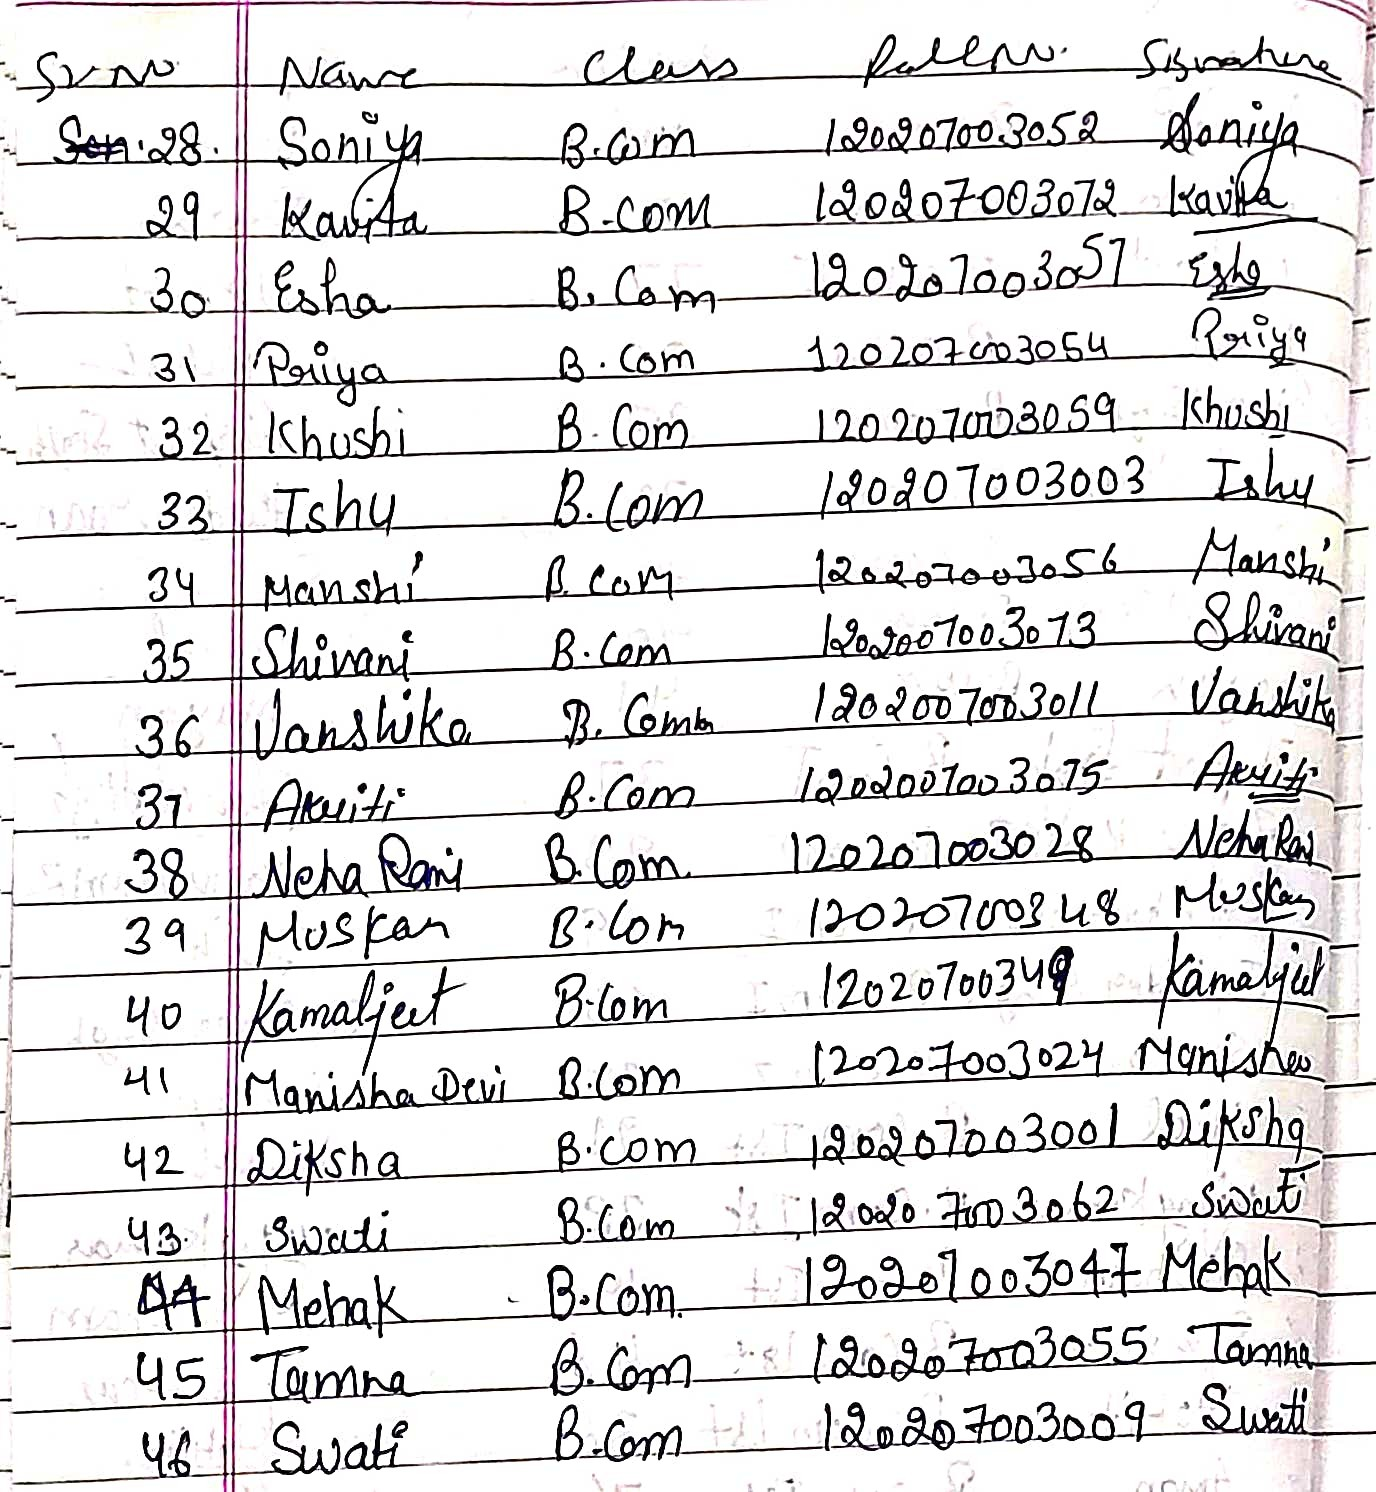 Sr No Name Class Roll No. Signature
28. Soniya B.com 120207003052 Soniya
29 Kavita B.com 120207003072 Kavita
30 Esha B. Com 120207003057 Esha
31 Priya B. Com 120207003054 Priya
32 Khushi B. Com 120207003059 Khushi
33 Ishu B. Com 120207003003 Ishu
34 Manshi B. com 120207003056 Manshi
35 Shivani B. Com 1202007003073 Shivani
36 Vanshika B. Com 1202007003011 Vanshika
37 Akriti B. Com 1202007003075 Akriti
38 Neha Rani B. Com. 120207003028 Neha Rani
39 Muskan B. Com 12020700348 Muskan
40 Kamaljeet B.Com 12020700349 Kamaljeet
41 Manisha Devi B.Com 120207003024 Manisha
42 Diksha B.com 120207003001 Diksha
43. Swati B.Com 120207003062 Swati
44 Mehak B.Com. 120207003047 Mehak
45 Tamna B.Com 120207003055 Tamna
46 Swati B.Com 120207003009 Swati